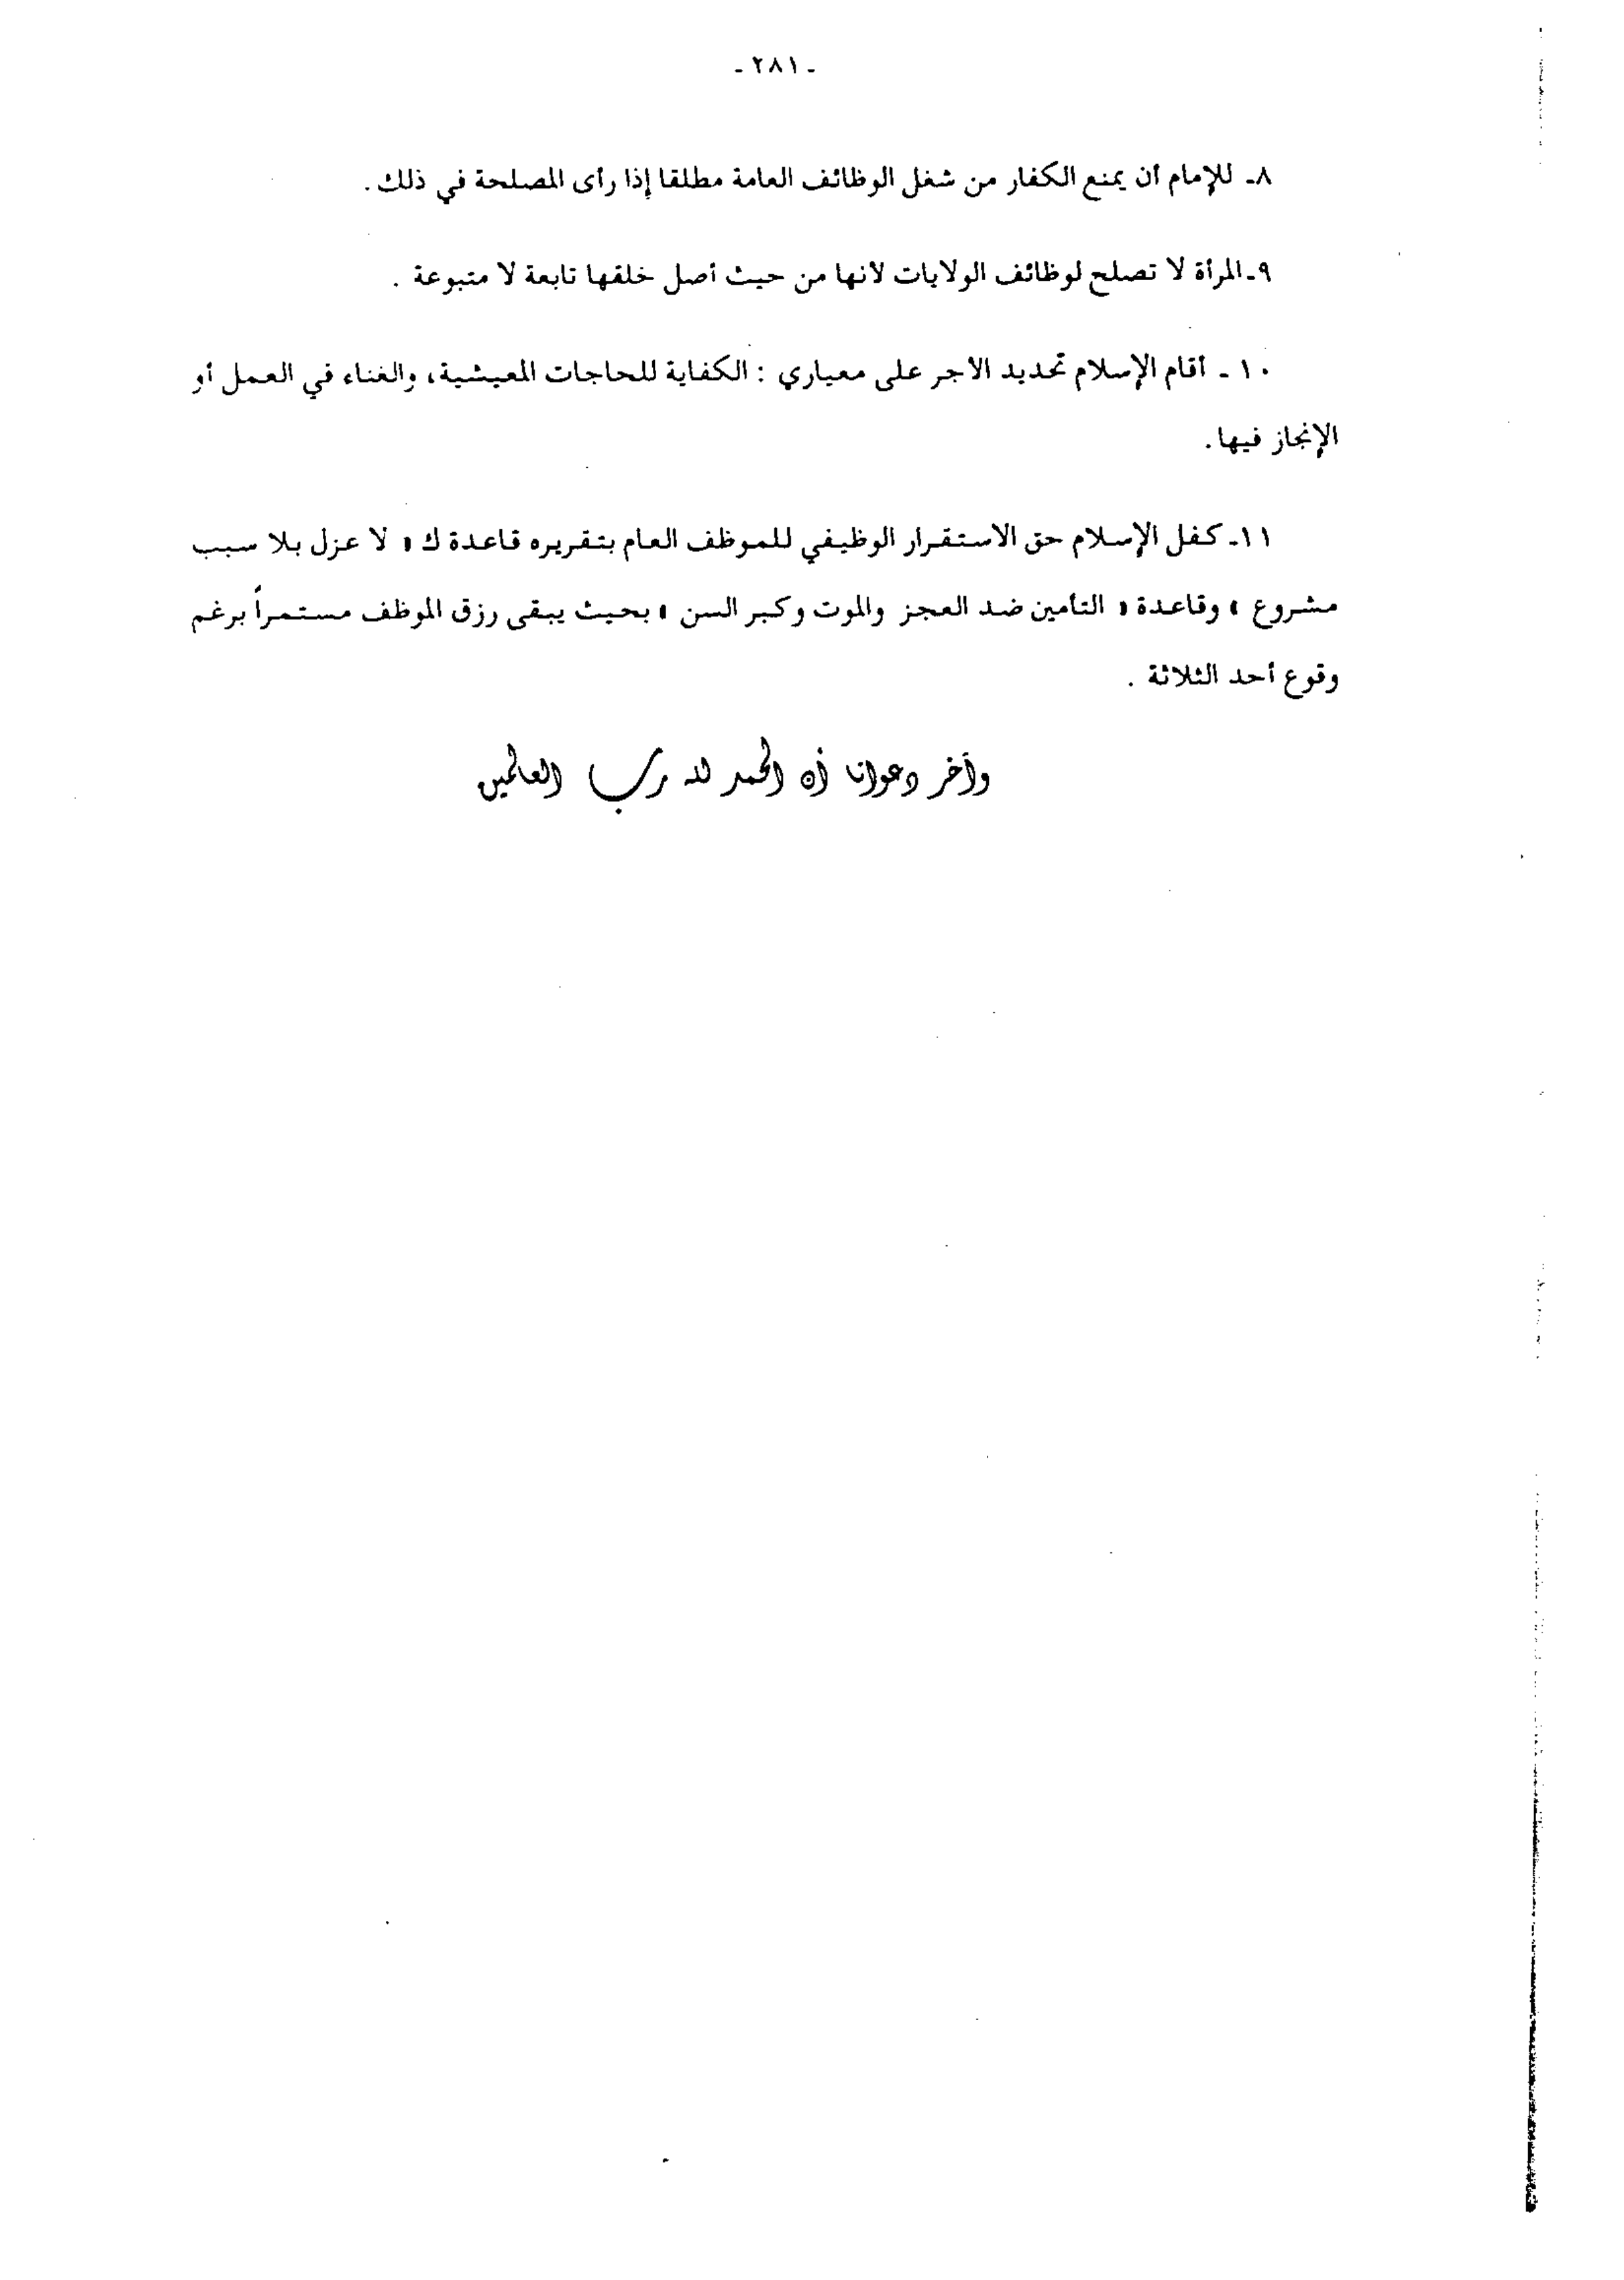 - ٢٨١ -
٨- للإمام أن يمنع الكفار من شغل الوظائف العامة مطلقا إذا رأى المصلحة في ذلك .
٩-المرأة لا تصلح لوظائف الولايات لانها من حيث أصل خلقها تابعة لا متبوعة .
١٠ - أقام الإسلام تحديد الاجر على معياري : الكفاية للحاجات المعيشية، والغناء في العمل أو
الإنجاز فيها.
١١- كفل الإسلام حق الاستقرار الوظيفي للموظف العام بتقريره قاعدة ك « لا عزل بلا سبب
مشروع » وقاعدة « التأمين ضد العجز والموت وكبر السن » بحيث يبقى رزق الموظف مستمراً برغم
وقوع أحد الثلاثة .
وآخر دعوانا أن الحمد لله رب العالمين